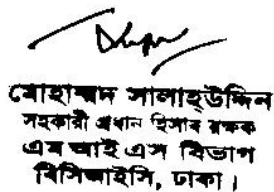 মোহাম্মদ সালাহ্উদ্দিন
সহকারী প্রধান হিসাব রক্ষক
এম আই এস বিভাগ
বিসিআইসি, ঢাকা।